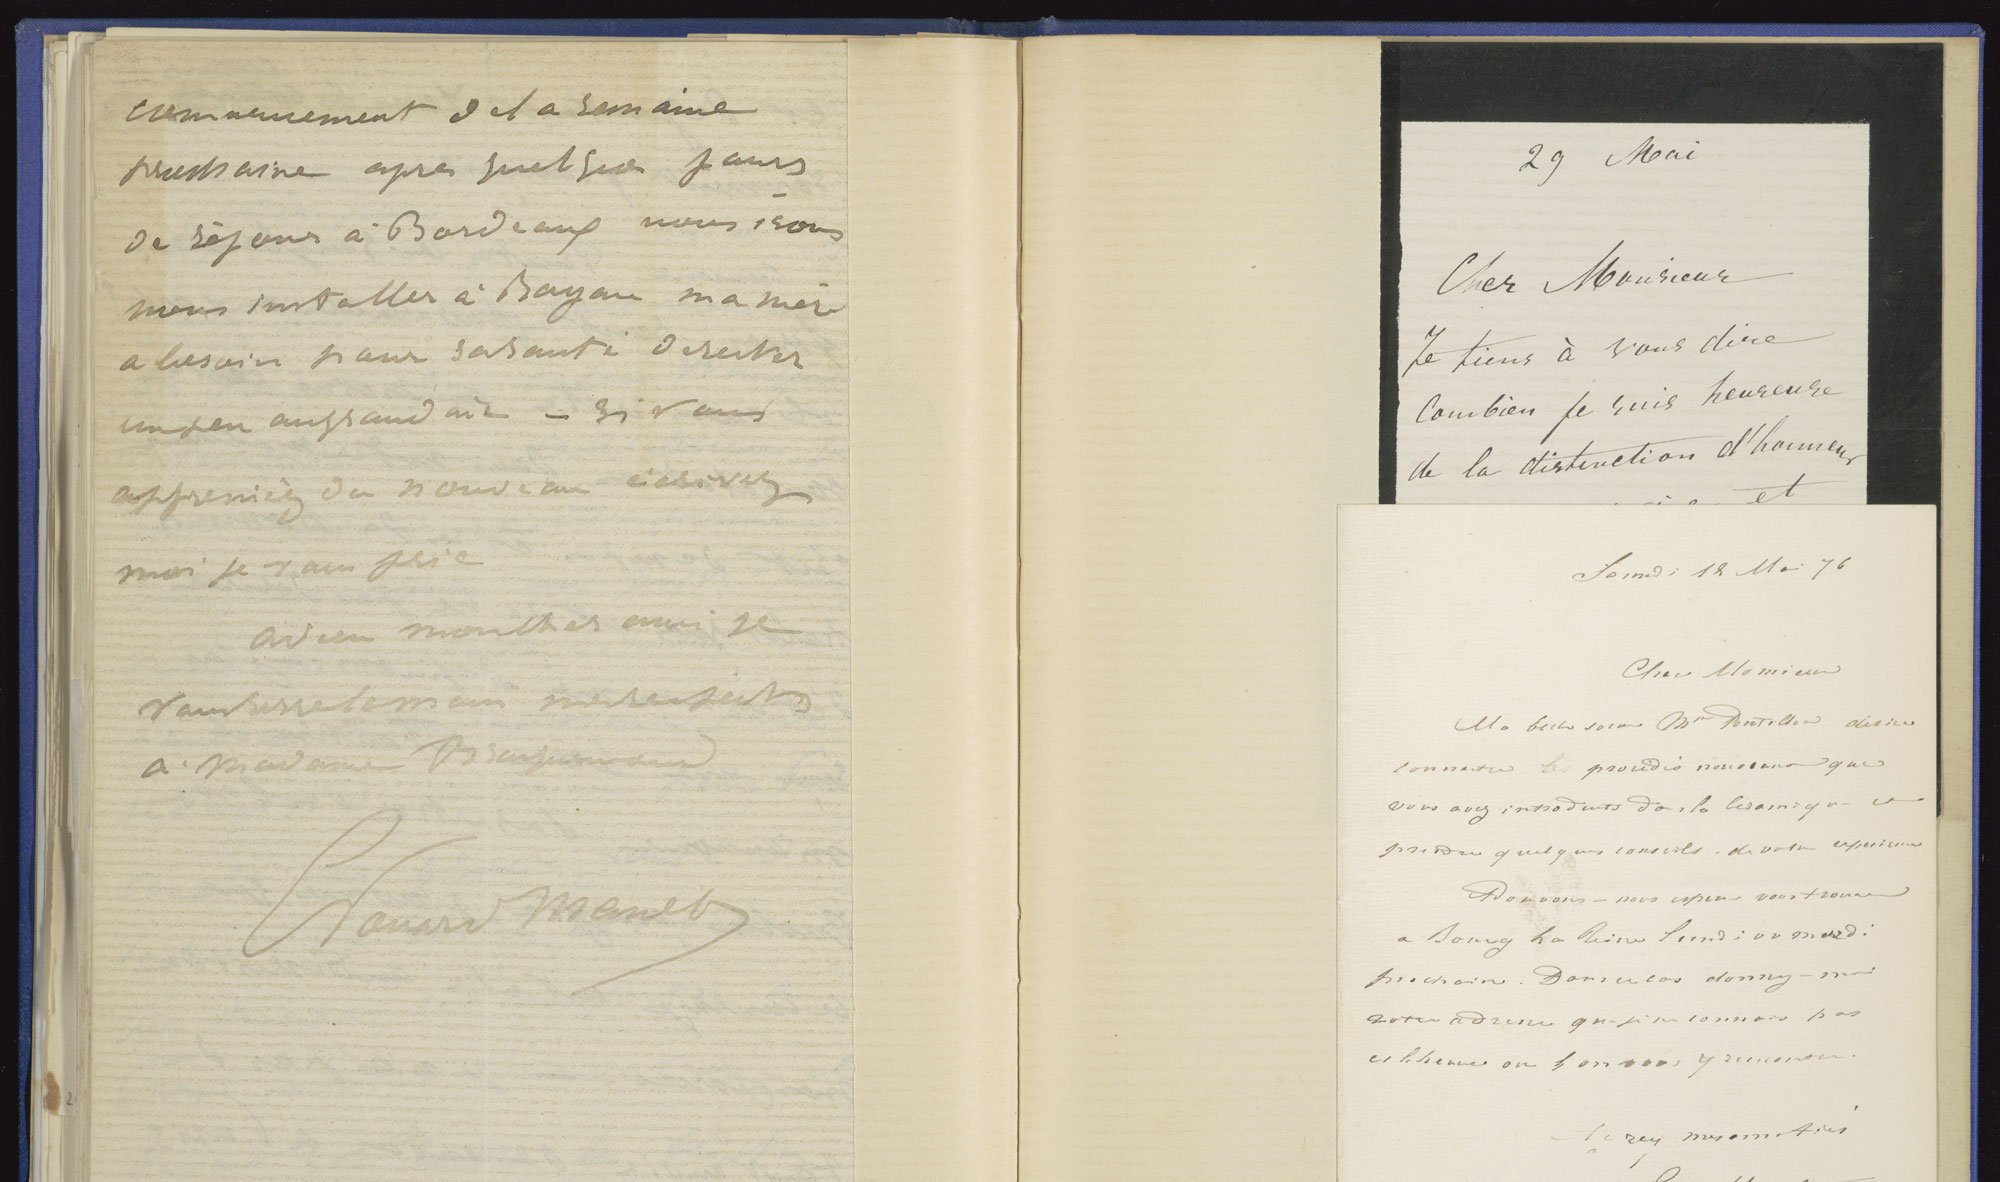 commencement de la semaine
prochaine apres quelques jours
de séjour à Bordeaux nous irons
nous installer à Royan ma mère
a besoin pour sa santé de rester
un peu au grand air – si vous
appreniez du nouveau écrivez
moi je vous prie
adieu mon cher ami je
vous serre la main mes respects
à Madame Bracquemond
Edouard Manet
2
29 Mai
Cher Monsieur
Je tiens à vous dire
Combien je suis heureuse
de la distinction d'honneur
et
Samedi 12 Mai 76
Cher Monsieur
Ma belle soeur Mme Pontillon désire
connaitre les procédés nouveaux que
vous avez introduits dans la Ceramique et
prendre quelques conseils de votre experience
Pouvons-nous esperer vous trouver
a Bourg La Reine Lundi ou mardi
prochain. Dans ce cas donnez-moi
votre adresse que je ne connais pas
et l'heure ou l'on vous y rencontre.
mes amitiés